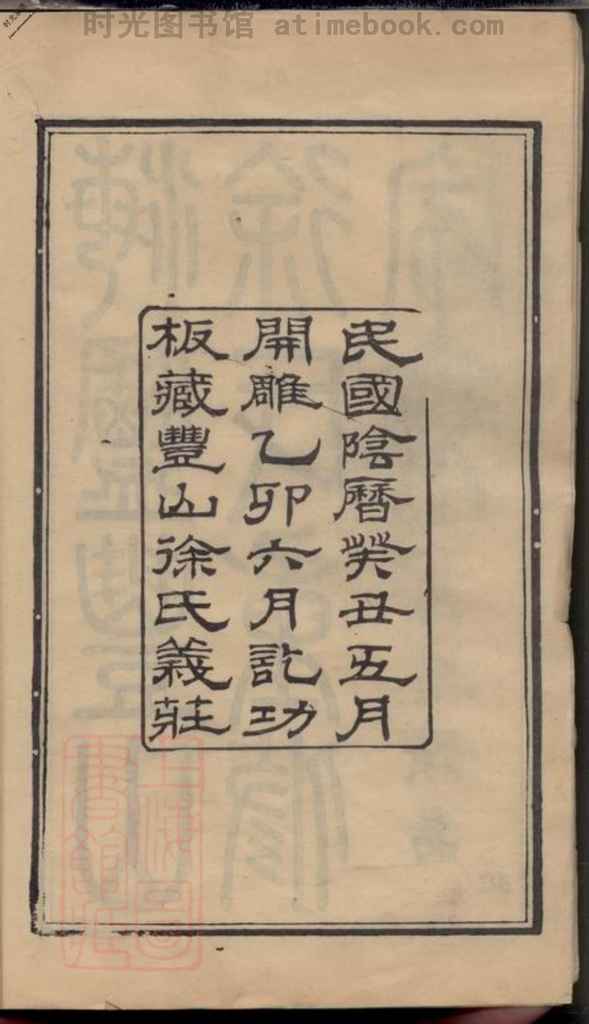 时光图书馆 atimebook.com
民國陰曆癸丑五月
開雕乙卯六月訖功
板藏豐山徐氏義莊